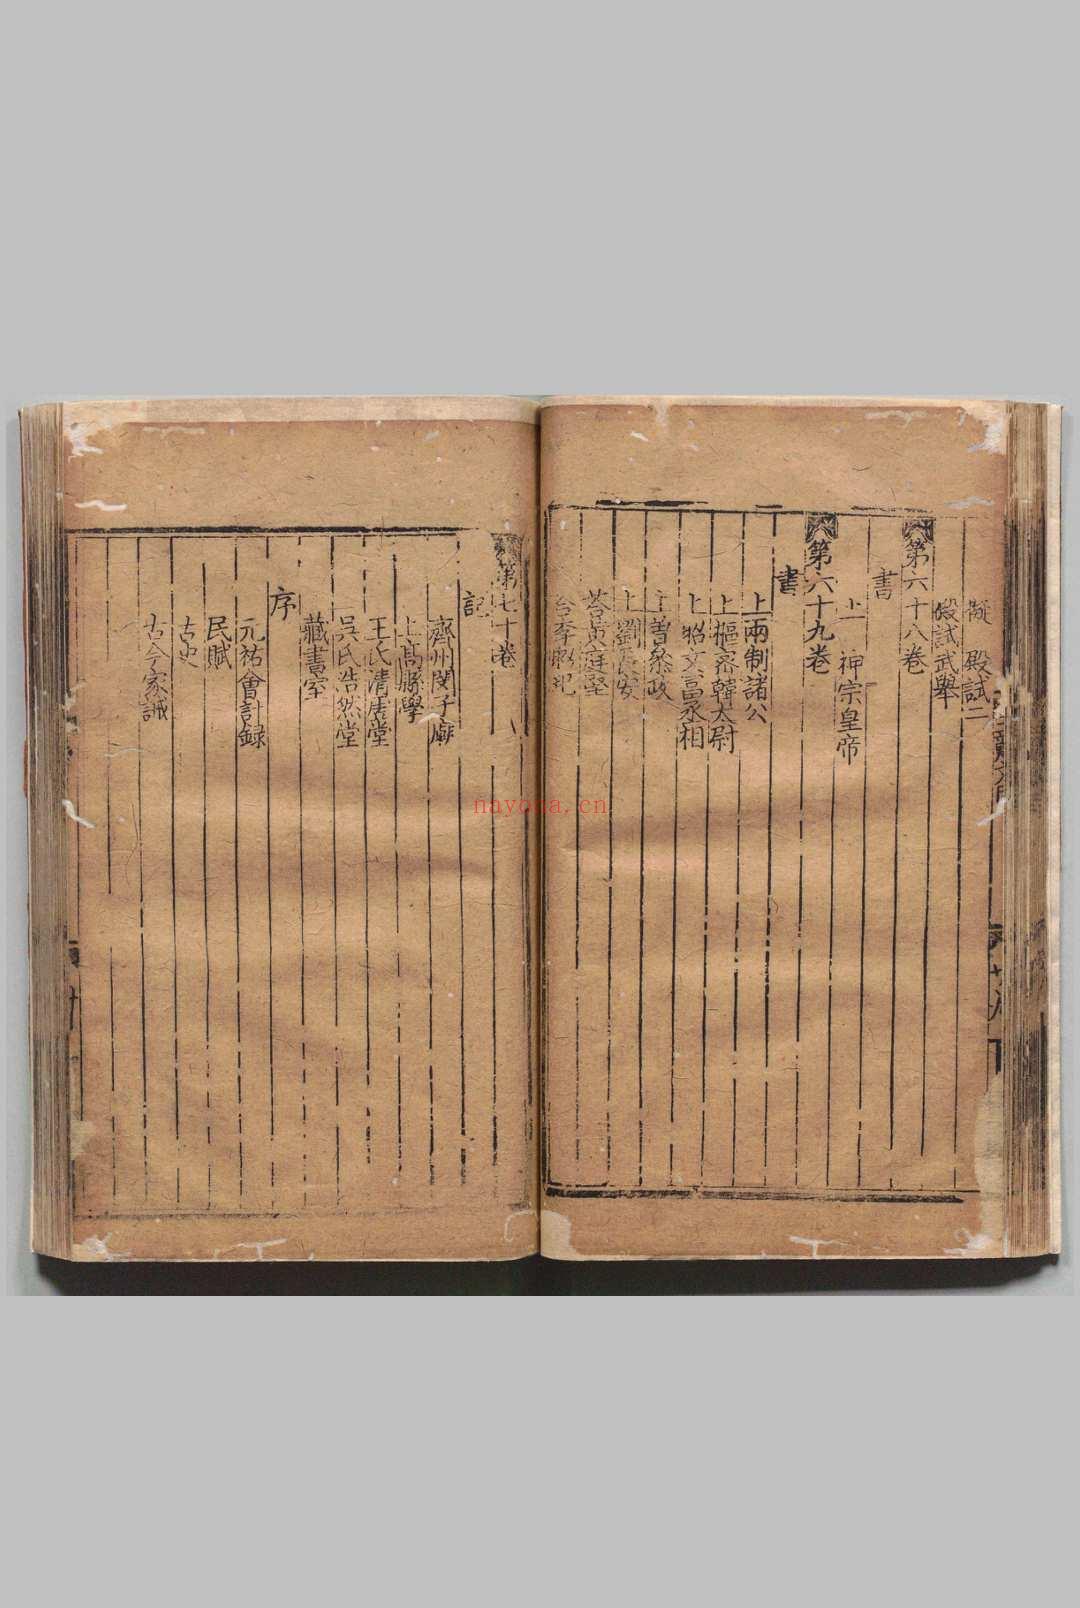 擬　殿試二
殿試武舉
第六十八卷
書
上　神宗皇帝
第六十九卷
書
上兩制諸公
上樞密韓太尉
上昭文富丞相
上曽叅政
上劉長安
荅黄庭堅
第七十卷
記
齊州閔子廟
上髙縣學
王氏清虚堂
吳氏浩然堂
藏書室
序
元祐會計録
民賦
古史
古今家誡
nayona.cn